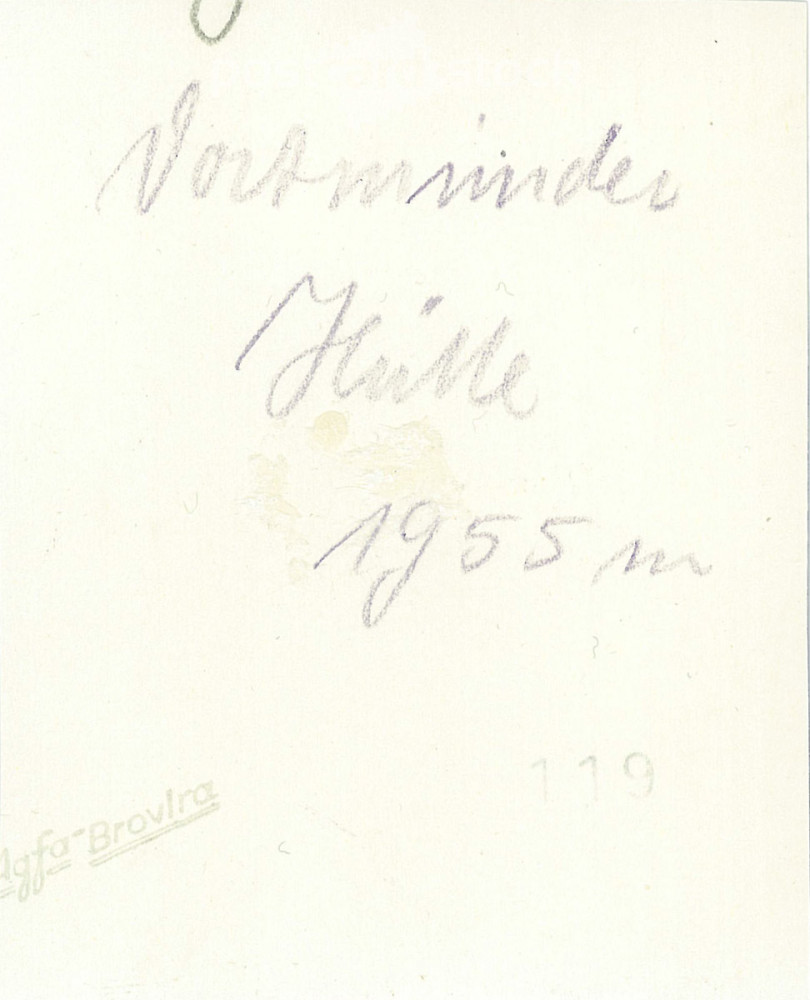 Dortmunder
Hütte
1955 m
119
Agfa-Brovira